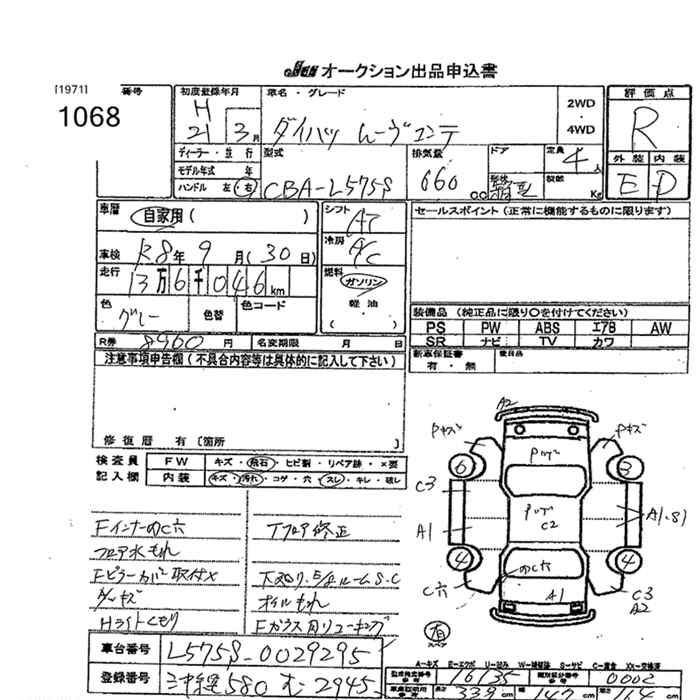 JU オークション出品申込書
[1971] 番号
1068
初度登録年月
H
21 3月
車名・グレード
ダイハツ ムーヴコンテ
2WD
・
4WD
評価点
R
ディーラー・並行
モデル年式 年
ハンドル 左・右
型式
CBA-L575S
排気量
660
cc
ドア
形状
定員
4人
積載
Kg
外装 内装
E D
車歴
自家用( )
シフト
AT
セールスポイント(正常に機能するものに限ります)
車検 R8年9月(30日)
冷房
A/C
走行
13万6千046km
燃料
ガソリン
軽油
( )
色
グレー
色替
色コード
装備品(純正品に限り○を付けてください)
PS PW ABS エアB AW
SR ナビ TV カワ
R券 8960円 名変期限 月 日
新車保証書 有・無
後日品
注意事項申告欄(不具合内容等は具体的に記入して下さい)
修復歴 有〔箇所 〕
検査員 FW キズ・飛石・ヒビ割・リペア跡・×要
記入欄 内装 キズ・汚れ・コゲ・穴・スレ・キレ・破レ
A2
Pキズ Pキズ
Pツブ
6 3
C3
Pツブ
C2
A1 A1.S1
4 4
のC穴
C穴 A1 C3
A2
有
スペア
FインナーのC穴 Tフロア修正
フロア水もれ
Fピラーカバー取付× 下スリ.E/gルームS.C
ダッキズ オイルもれ
Hライトくもり Fガラス内リューキング
車台番号 L575S-0029295
登録番号 580 む 2945
A-キズ E-エクボ U-凹み W-補修跡 S-サビ C-腐食 XX-交換済
16135 類別区分番号 0002
339 cm 147 cm